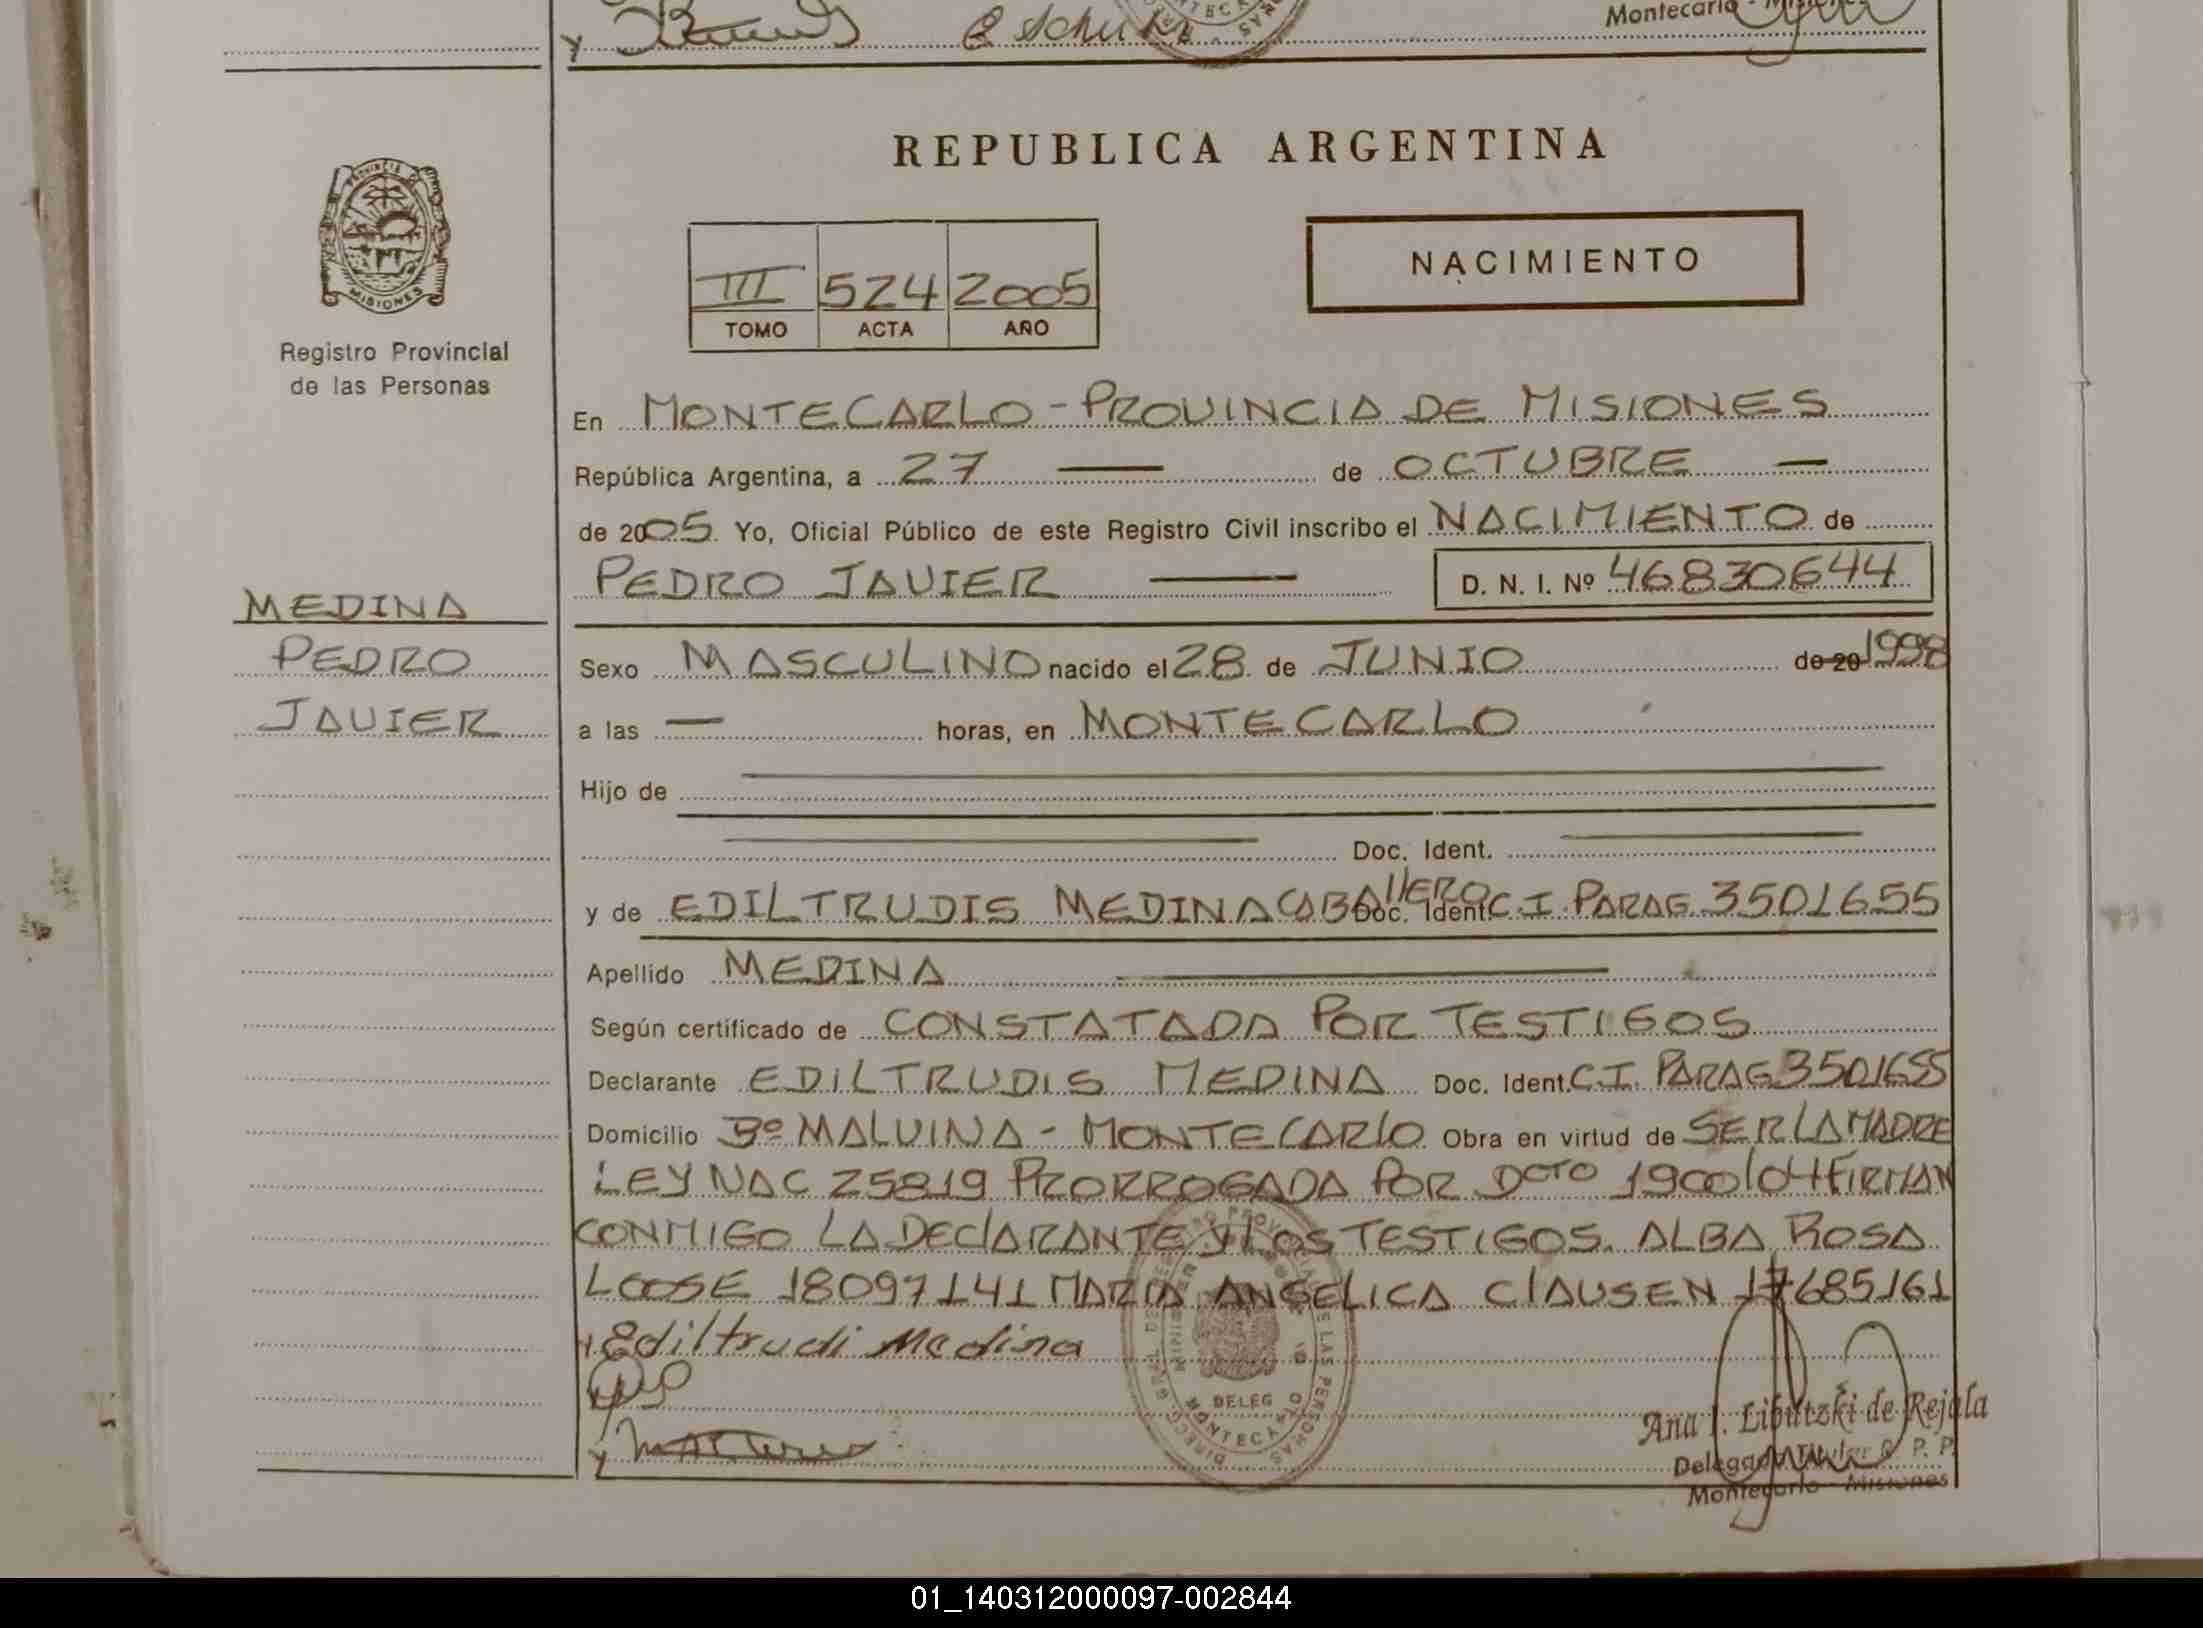 y C Schutz Montecarlo - Misiones
REPUBLICA ARGENTINA
PROVINCIA DE MISIONES
Registro Provincial
de las Personas
III 524 2005
TOMO ACTA AÑO
NACIMIENTO
En MONTECARLO - PROVINCIA DE MISIONES
República Argentina, a 27 — de OCTUBRE —
de 2005. Yo, Oficial Público de este Registro Civil inscribo el NACIMIENTO de
PEDRO JAVIER — D. N. I. Nº 46830644
MEDINA
PEDRO
JAVIER
Sexo MASCULINO nacido el 28 de JUNIO de 20 1998
a las — horas, en MONTECARLO
Hijo de —
— Doc. Ident. —
y de EDILTRUDIS MEDINA CABAllERO Doc. Ident. C.I. PARAG. 3501655
Apellido MEDINA —
Según certificado de CONSTATADA POR TESTIGOS
Declarante EDILTRUDIS MEDINA Doc. Ident. C.I. PARAG 3501655
Domicilio Bº MALVINA - MONTECARlO Obra en virtud de SER LA MADRE
LEY NAC 25819 PRORROGADA POR DCTO 1900/04 FIRMAN
CONMIGO LA DEClARANTE y LOS TESTIGOS. ALBA ROSA
LOOSE 18097141 MARIA ANGELICA ClAUSEN 17685161
Ediltrudi Medina
y
DELEG
MONTECARLO
Ana I. Libutzki de Rejala
Delegada Titular R. P. P.
Montecarlo - Misiones
01_140312000097-002844